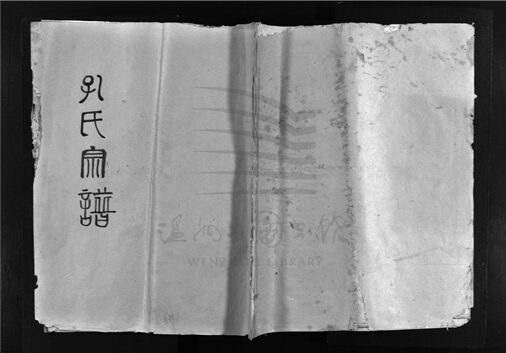 孔氏宗譜
温州市图书馆
WENZHOU LIBRARY